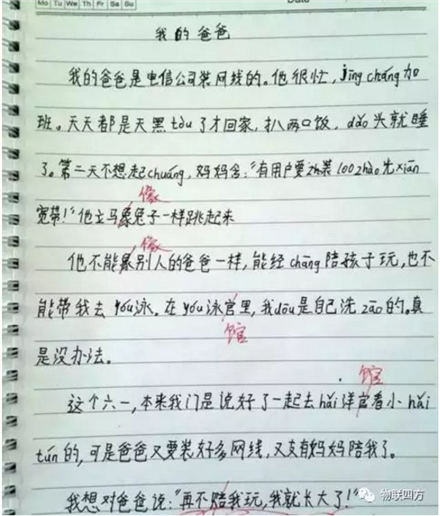 Mo Tu We Th Fr Sa Su
我的爸爸
我的爸爸是电信公司装网线的。他很忙，jīng cháng加
班。天天都是天黑tòu了才回家，扒两口饭，dǎo头就睡
了。第二天不想起chuáng，妈妈说："有用户要zh装100zhào光xiān
像
宽带！"他立马象兔子一样跳起来
像
他不能象别人的爸爸一样，能经cháng陪孩子玩，也不
能带我去yóu泳。在yóu泳宫里，我dōu是自己洗zǎo的。真
馆
是没办法。
馆
这个六一，本来我们是说好了一起去hǎi洋宫看小hǎi
tún的，可是爸爸又要装好多网线，又支有妈妈陪我了。
我想对爸爸说："再不陪我玩，我就长大了！"
物联四方